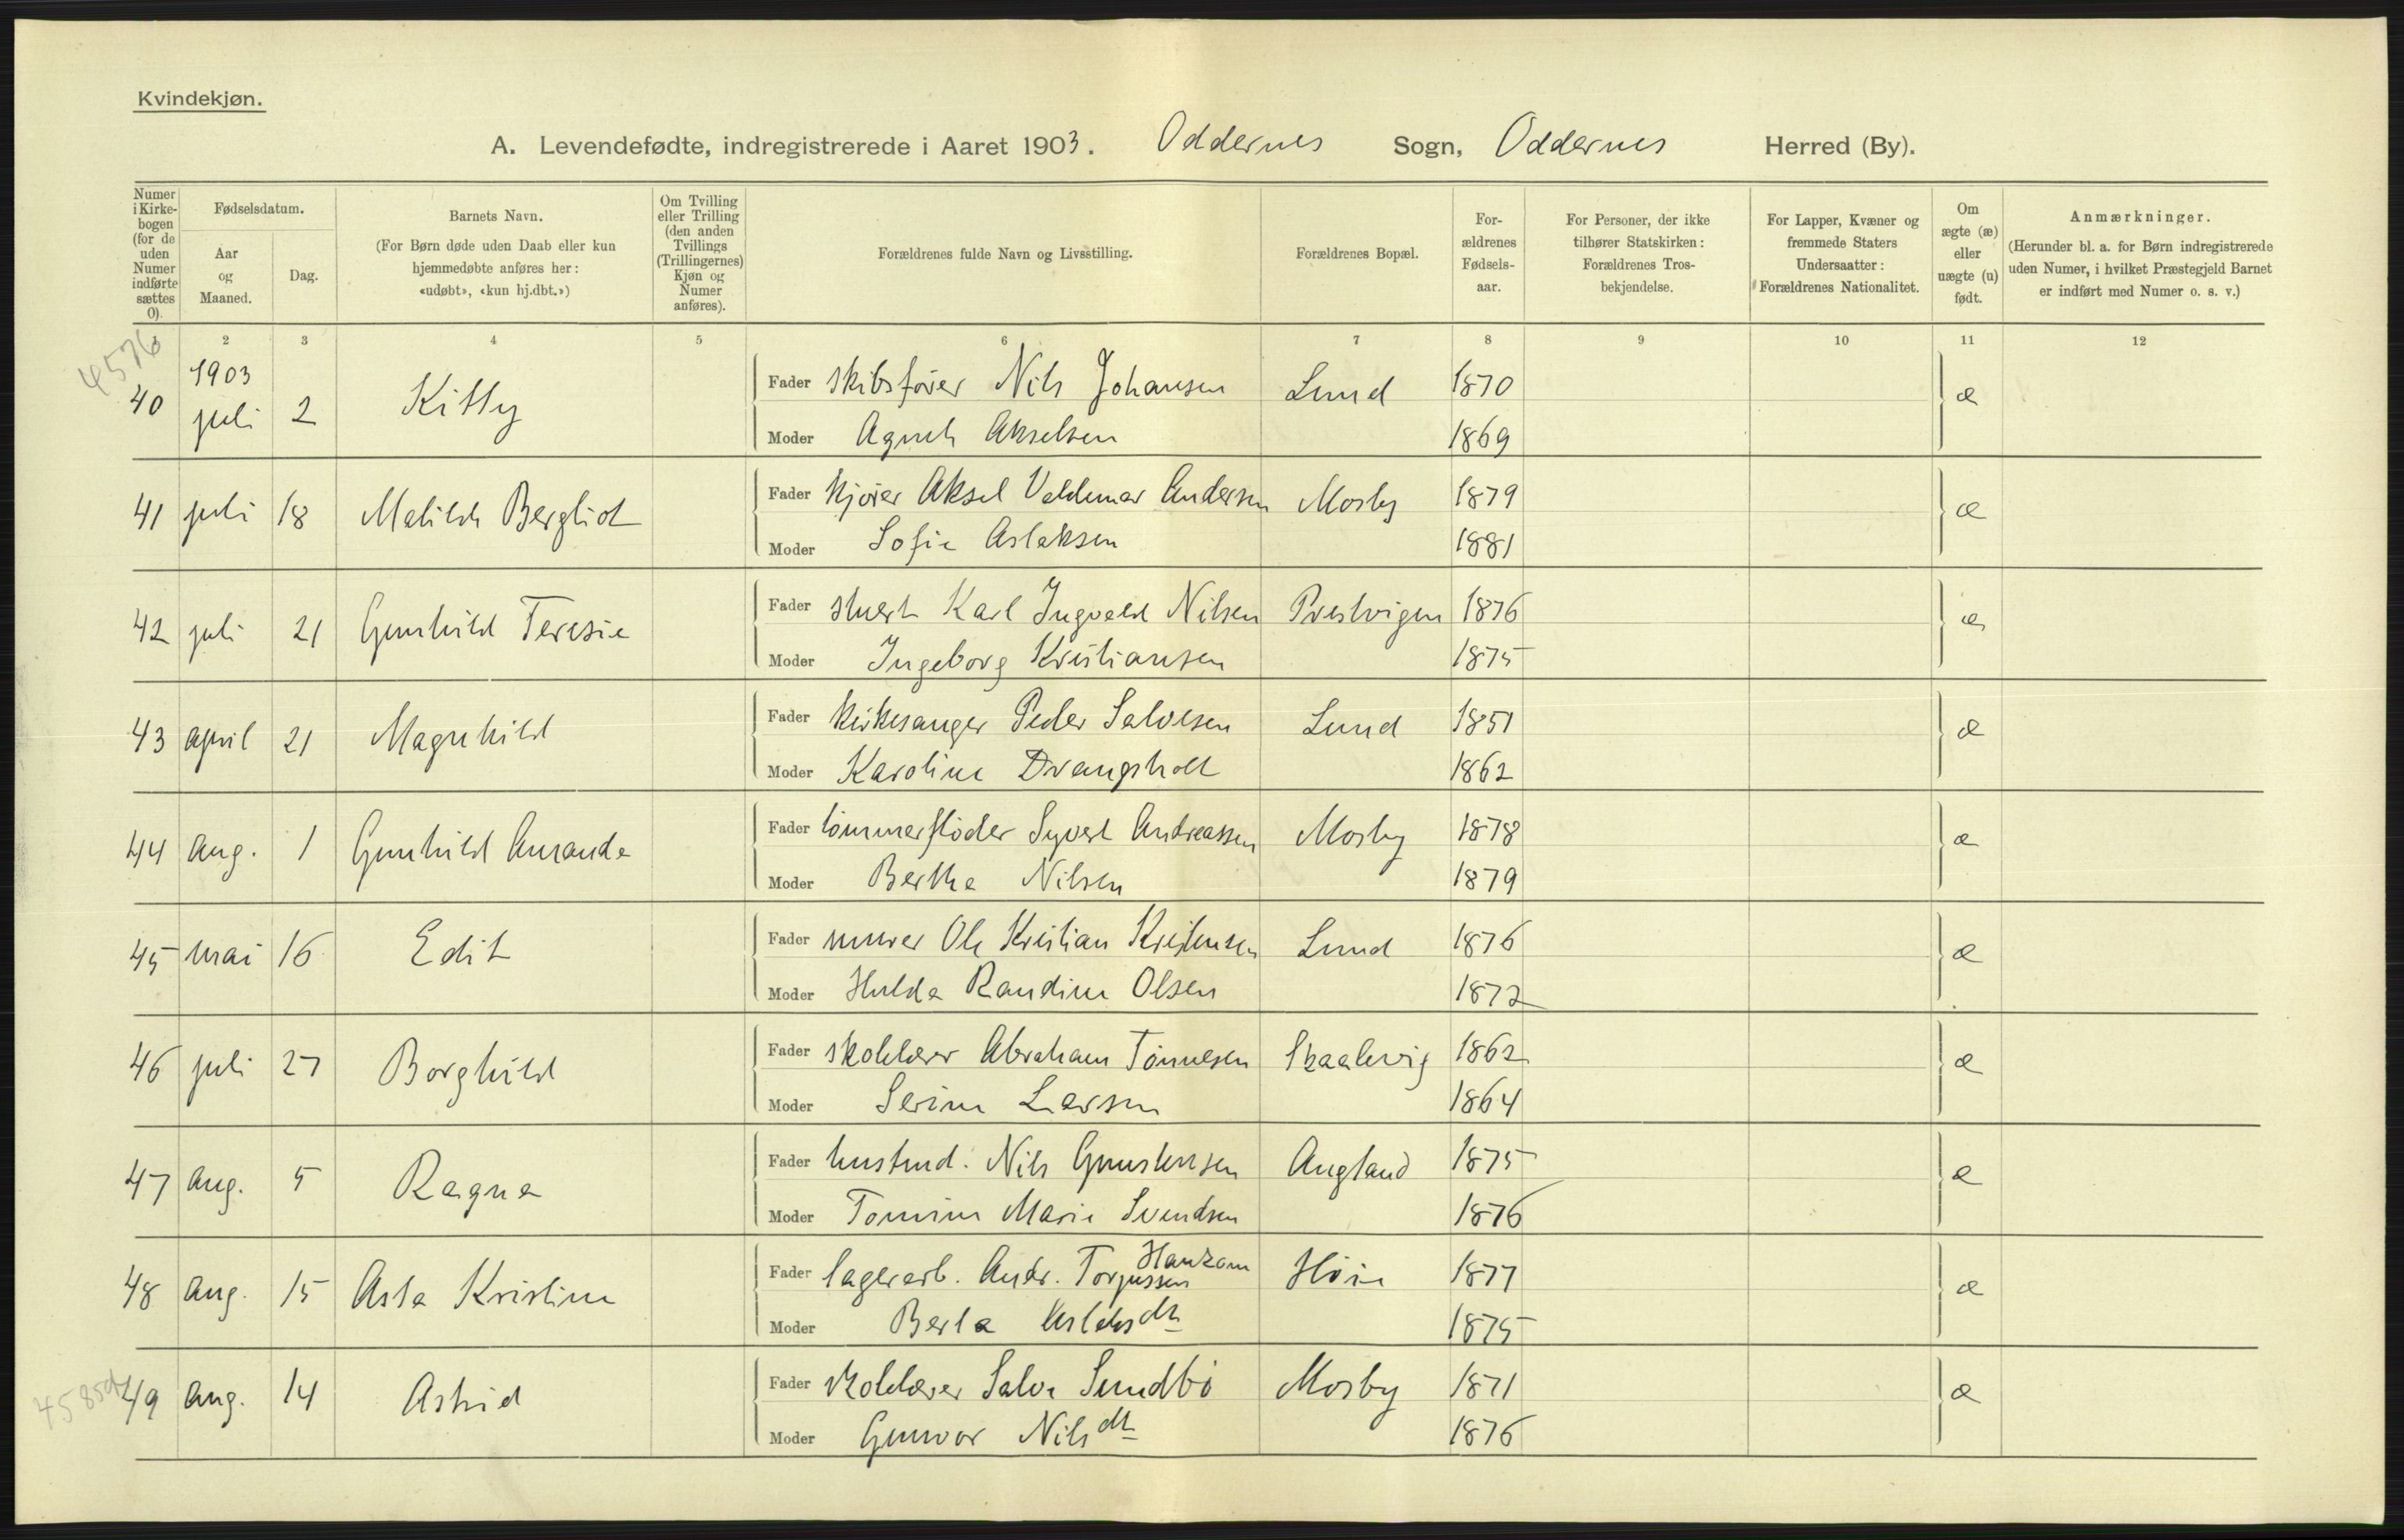 Kvindekjøn.
A. Levendefødte, indregistrerede i Aaret 1903. Oddernes Sogn, Oddernes Herred (By).
Numer i Kirkebogen (for de uden Numer indførte sættes 0).
Fødselsdatum.
Aar og Maaned.
Dag.
Barnets Navn.
(For Børn døde uden Daab eller kun hjemmedøbte anføres her: «udøbt», «kun hj.dbt.»)
Om Tvilling eller Trilling (den anden Tvillings (Trillingernes) Kjøn og Numer anføres).
Forældrenes fulde Navn og Livsstilling.
Forældrenes Bopæl.
Forældrenes Fødselsaar.
For Personer, der ikke tilhører Statskirken: Forældrenes Trosbekjendelse.
For Lapper, Kvæner og fremmede Staters Undersaatter: Forældrenes Nationalitet.
Om ægte (æ) eller uægte (u) født.
Anmærkninger.
(Herunder bl. a. for Børn indregistrerede uden Numer, i hvilket Præstegjeld Barnet er indført med Numer o. s. v.)
2 3 4 5 6 7 8 9 10 11 12
4576
1903
40 juli 2 Kitty Fader skibsfører Nils Johansen Lund 1870 æ
Moder Agneth Akselsen 1869
41 juli 18 Matilde Bergliot Fader kjører Aksel Valdemar Andersen Mosby 1879 æ
Moder Sofie Aslaksen 1881
42 juli 21 Gunhild Teresie Fader stuert Karl Ingvald Nilsen Prestvigen 1876 æ
Moder Ingeborg Kristiansen 1875
43 april 21 Magnhild Fader kirkesanger Peder Salvesen Lund 1851 æ
Moder Karoline Drangsholt 1862
44 aug. 1 Gunhild Amanda Fader tømmerfløder Syvert Andreassen Mosby 1878 æ
Moder Bertha Nilsen 1879
45 mai 16 Edit Fader murer Ole Kristian Kristensen Lund 1876 æ
Moder Hulda Randine Olsen 1872
46 juli 27 Borghild Fader skolelærer Abraham Tønnesen Skaalevig 1862 æ
Moder Serine Larsen 1864
47 aug. 5 Ragna Fader hustmd. Nils Gunstensen Augland 1875 æ
Moder Tomine Marie Svendsen 1876
48 aug. 15 Asta Kristine Fader lagerarb. Andr. Torjussen Hankom Høie 1877 æ
Moder Berta Aslaksdtr 1875
4585
49 aug. 14 Astrid Fader skolelærer Salve Sundbø Mosby 1871 æ
Moder Gunvor Nilsdtr 1876